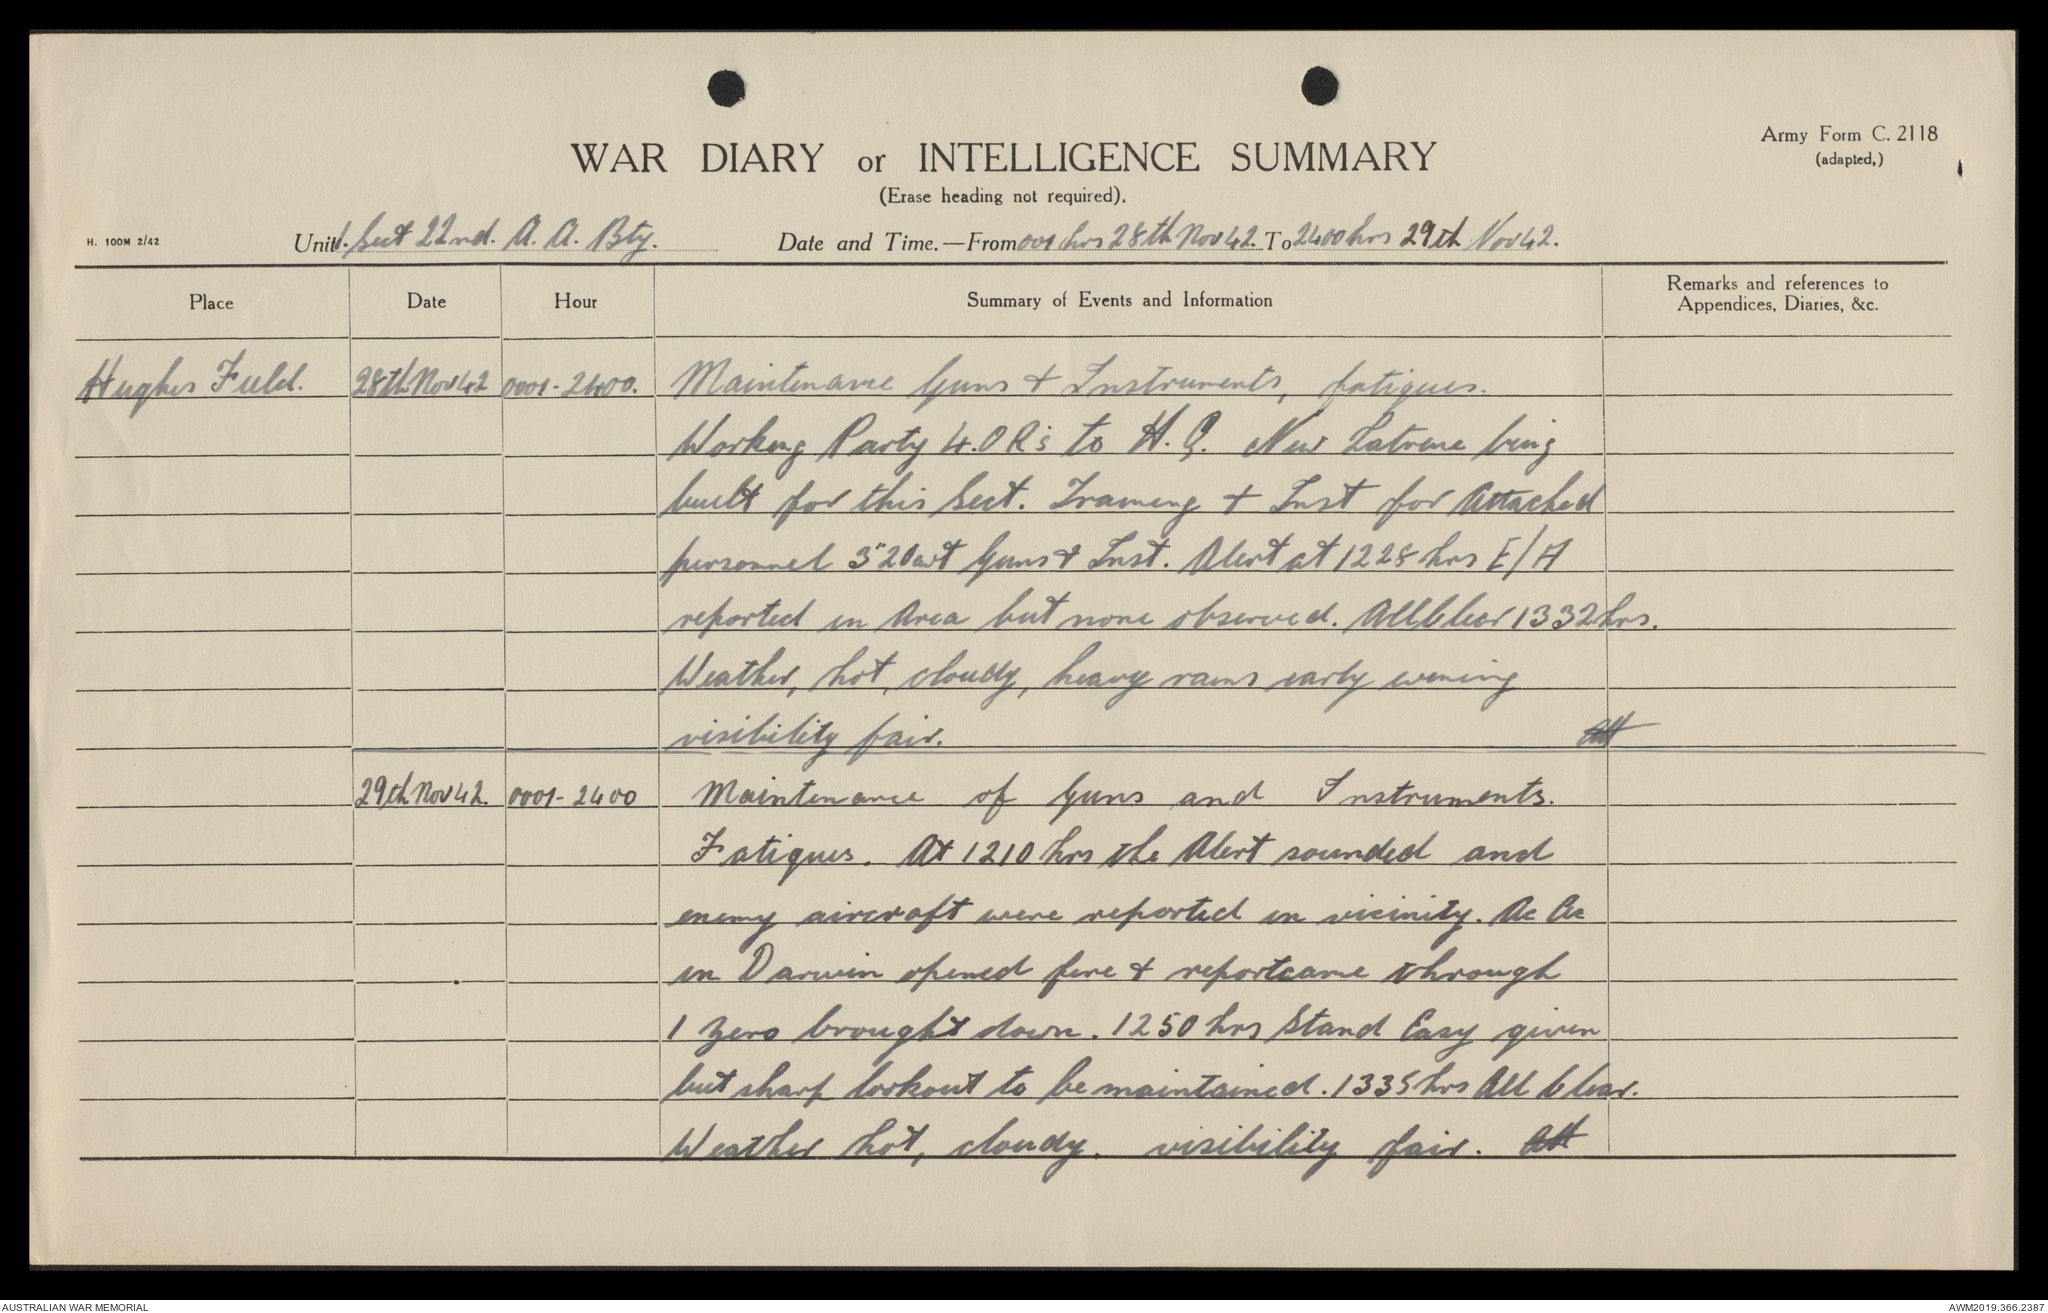 Army Form C. 2118
(adapted,)
WAR DIARY or INTELLIGENCE SUMMARY
(Erase heading not required).
H. 100M 2/42
Unit 1. Sect 22nd. A. A. Bty. Date and Time.—From 0001 hrs 28th Nov 42. To 2400 hrs 29th Nov 42.
Place Date Hour Summary of Events and Information Remarks and references to
Appendices, Diaries, &c.
Hughes Field. 28th Nov 42 0001-2400. Maintenance Guns + Instruments, fatigues.
Working Party 4.ORs to H.Q. New Latrine being
built for this Sect. Training + Inst for Attached
personnel 3"20cwt Guns + Inst. Alert at 1228 hrs E/A
reported in Area but none observed. All Clear 1332 hrs.
Weather, hot, cloudy, heavy rains early evening
visibility fair.
29th Nov 42. 0001-2400 Maintenance of Guns and Instruments.
Fatigues. At 1210 hrs the Alert sounded and
enemy aircraft were reported in vicinity. Ac Ac
in Darwin opened fire + report came through
1 Zero brought down. 1250 hrs Stand Easy given
but sharp lookout to be maintained. 1335 hrs All Clear.
Weather hot, cloudy. visibility fair.
AUSTRALIAN WAR MEMORIAL AWM2019.366.2387